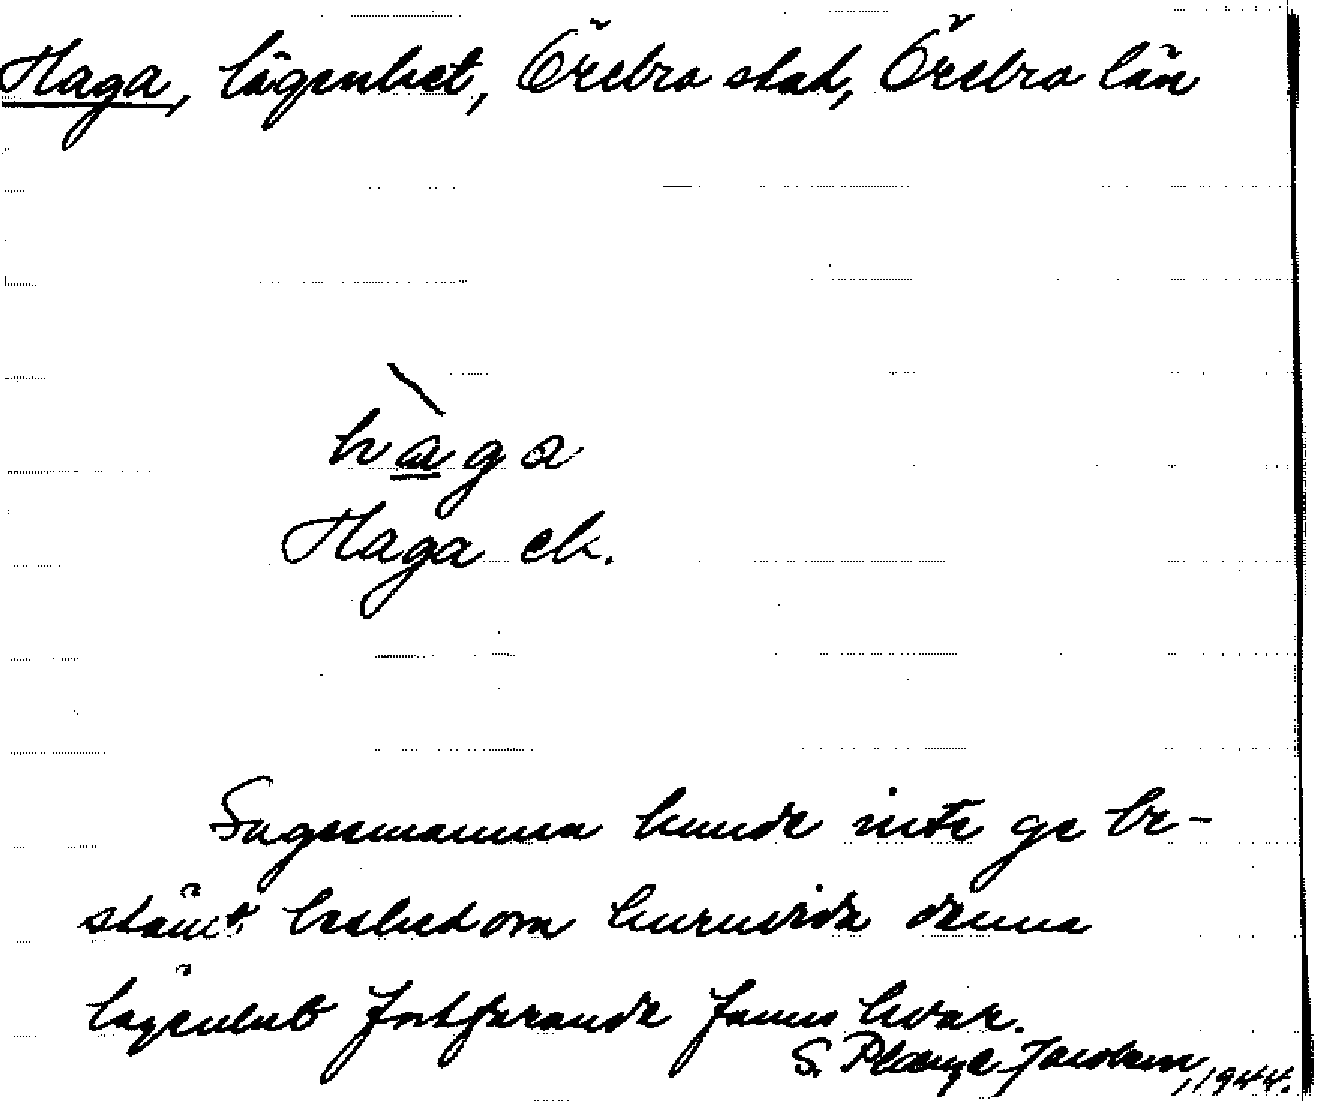 Haga, lägenhet, Örebro stad, Örebro län
hàga
Haga ek.
Sagesmannen kunde inte ge be-
stämt besked om huruvida denna
lägenhet fortfarande fanns kvar.
S. Plange Jacobson, 1944.